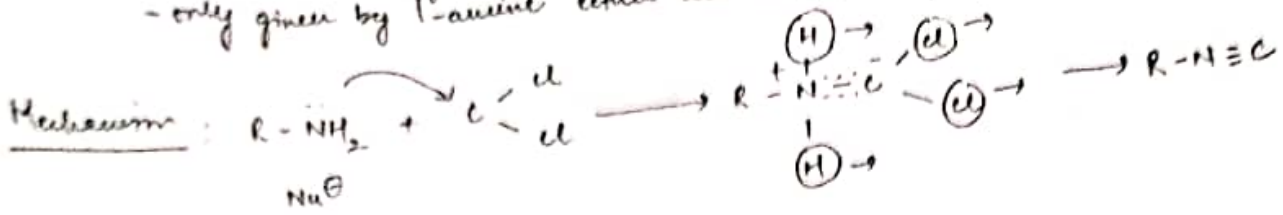 - only given by 1°-amine
Mechanism : R - N̈H₂ + C Cl Cl → R - N⁺ H H - C⁻ Cl Cl → R - N ≡ C
Nu⊖